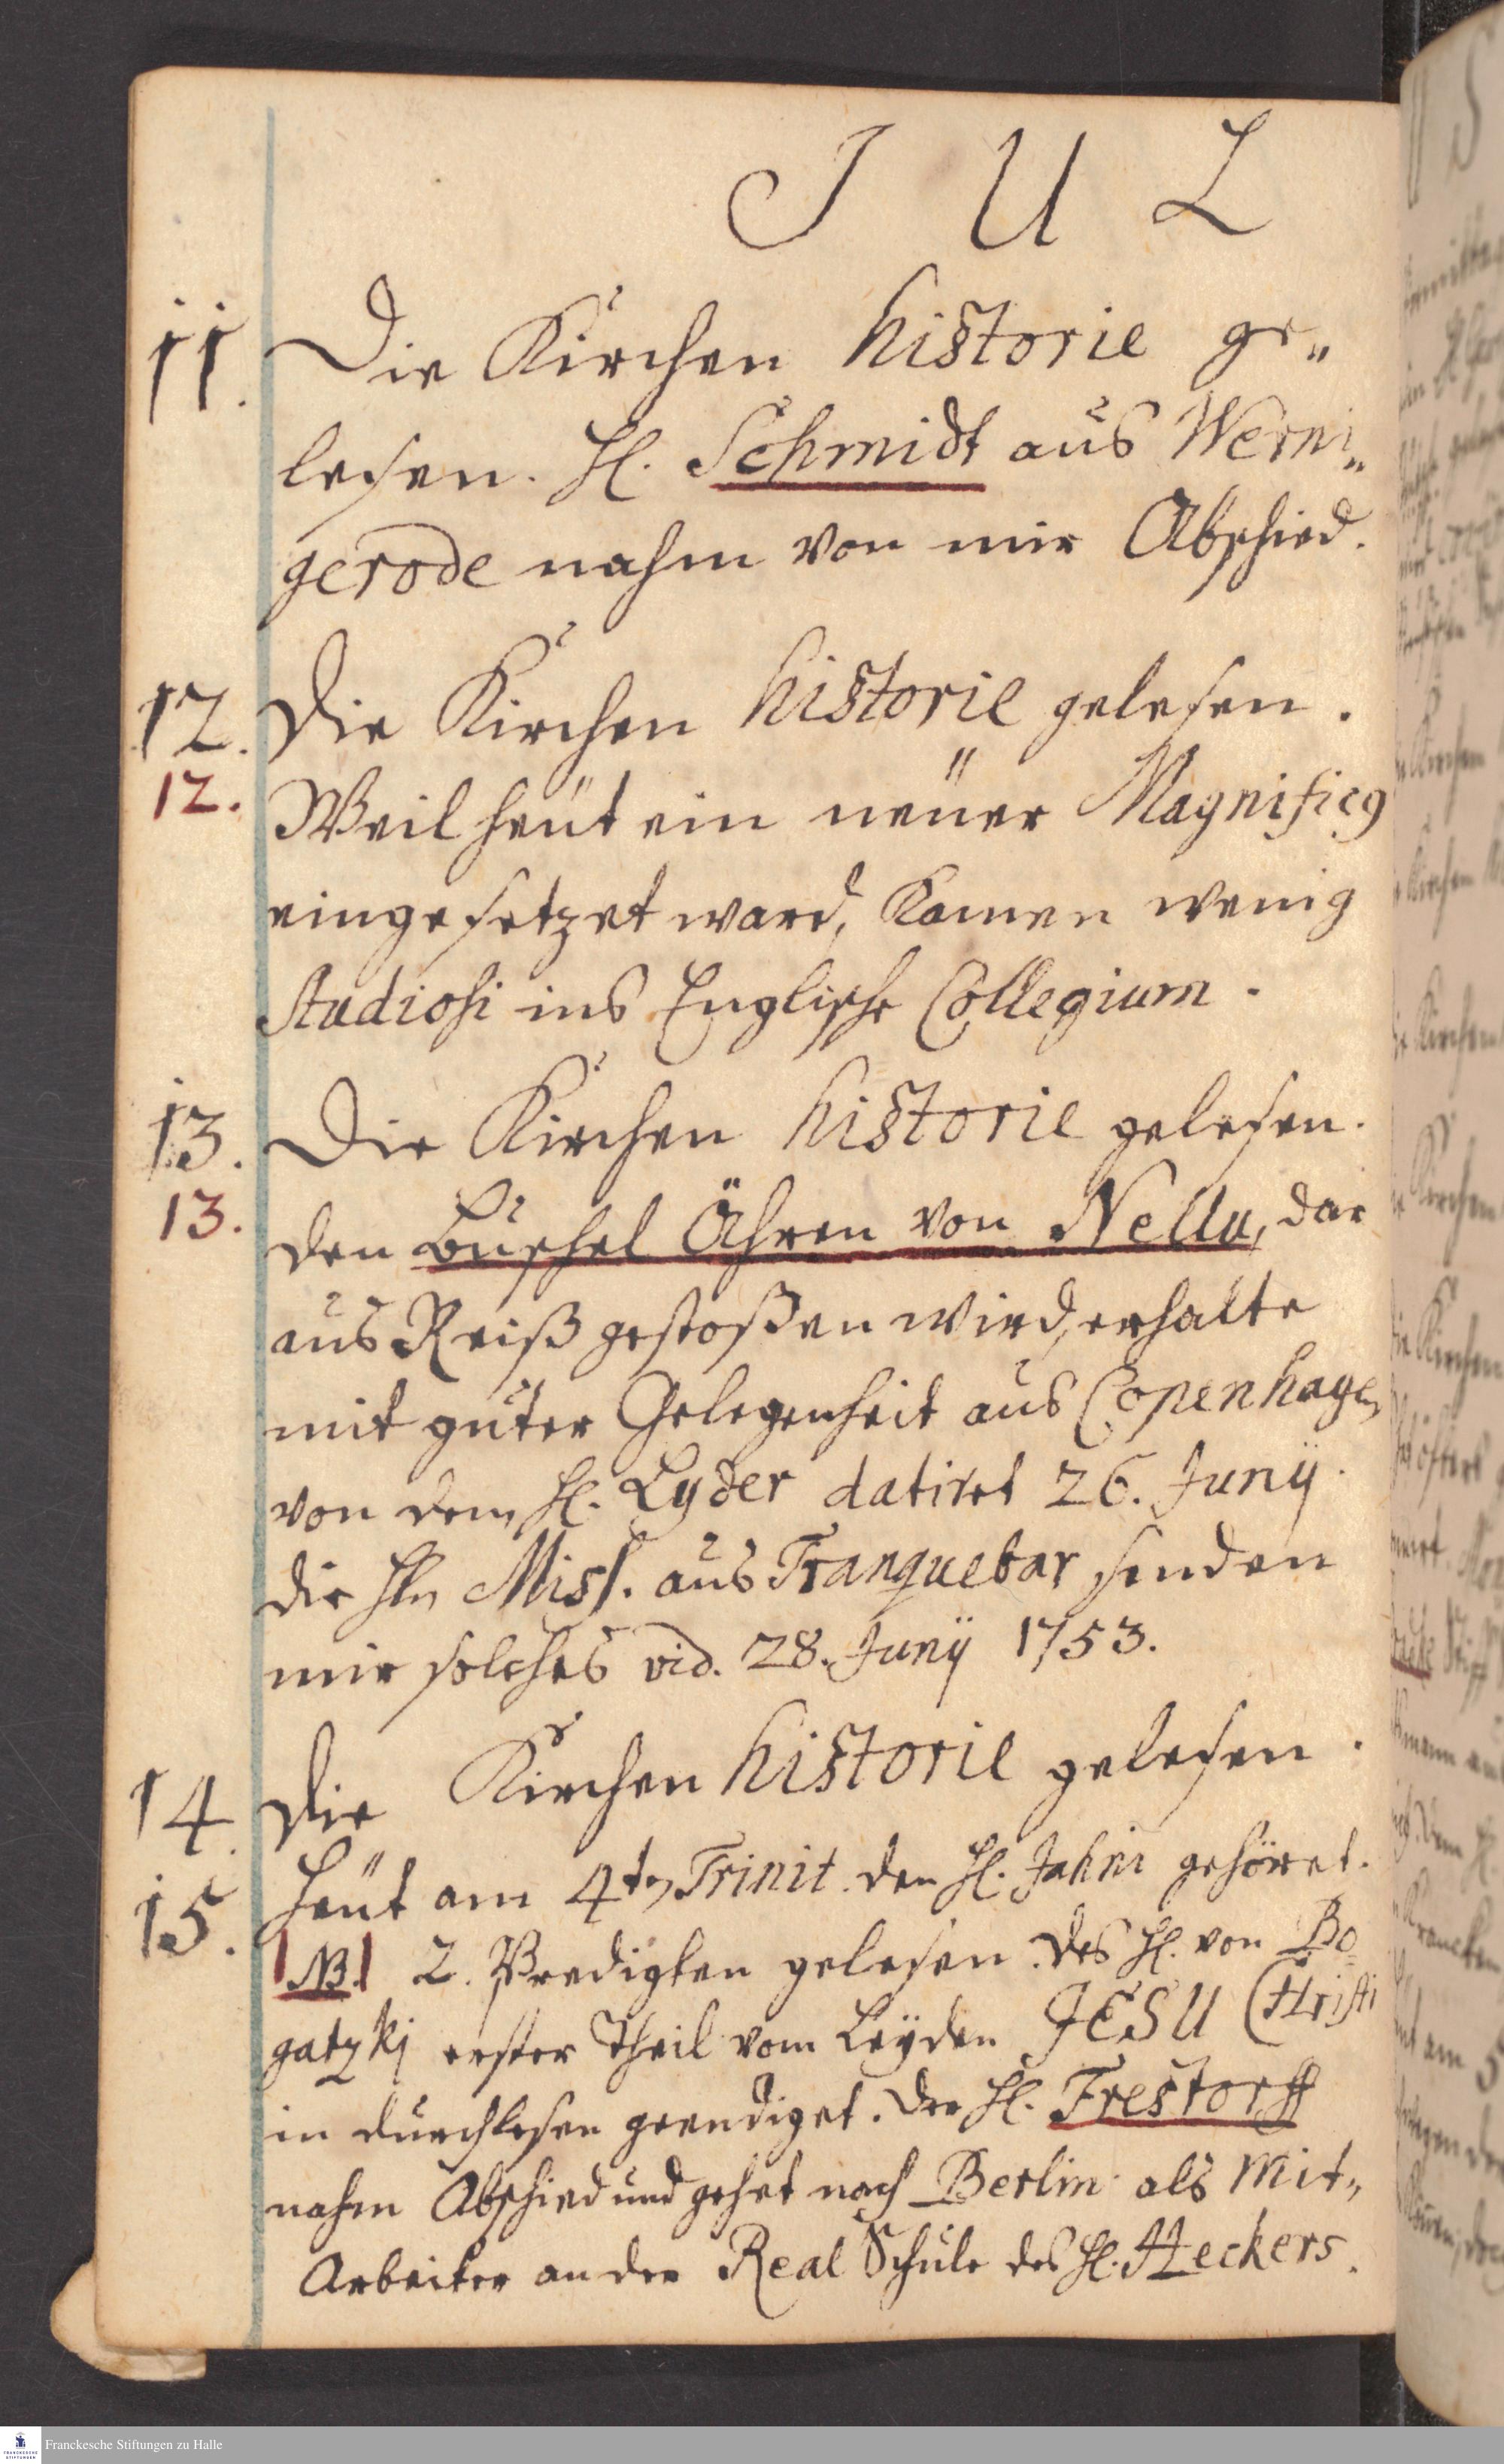 J U L
11. Die Kirchen Historie ge„
lesen. H. Schmidt aus Werni„
gerode nahm von mir Abschied.
12. Die Kirchen Historie gelesen.
12. Weil heüt ein neüer Magnificg
eingesetzet ward, kamen wenig
Studiosi ins Englische Collegium.
13. Die Kirchen Historie gelesen.
13. den Buschel Ähren von Nellu, dar
aus Reiß gestoßen wird, erhalte
mit guter Gelegenheit aus Copenhagen
von dem H. Lyder datiret 26. Junÿ
die Hn Miss. aus Tranquebar senden
mir solches vid. 28. Junÿ 1753.
14. Die Kirchen Historie gelesen.
15. Heüt am 4tn Trinit. den H. Jahni gehöret.
NB. 2. Predigten gelesen. des H. von Bo
gatzkj erster Theil vom Leÿden JESU CHristi
in durchlesen geendiget. Der H. Frestorff
nahm Abschied und gehet nach Berlin als Mit„
Arbeiter an der Real Schule des H. Heckers.
Franckesche Stiftungen zu Halle